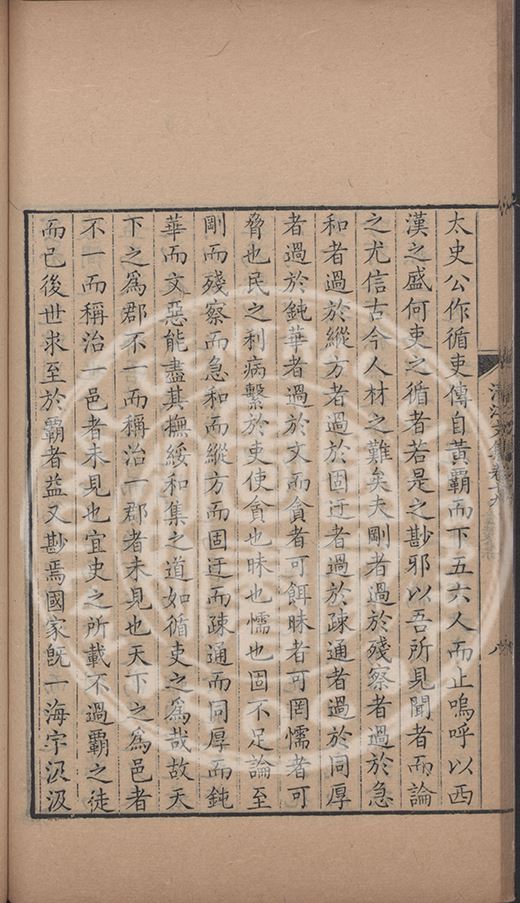 太史公作循吏傳自黃霸而下五六人而止嗚呼以西
漢之盛何吏之循者若是之尠邪以吾所見聞者而論
之尤信古今人材之難矣夫剛者過於殘察者過於急
和者過於縱方者過於固迂者過於疎通者過於同厚
者過於鈍華者過於文而貪者可餌昧者可罔懦者可
脅也民之利病繫於吏使貪也昧也懦也固不足論至
剛而殘察而急和而縱方而固迂而疎通而同厚而鈍
華而文惡能盡其撫綏和集之道如循吏之為哉故天
下之為郡不一而稱治一郡者未見也天下之為邑者
不一而稱治一邑者未見也宜史之所載不過霸之徒
而已後世求至於霸者益又尠焉國家旣一海宇汲汲